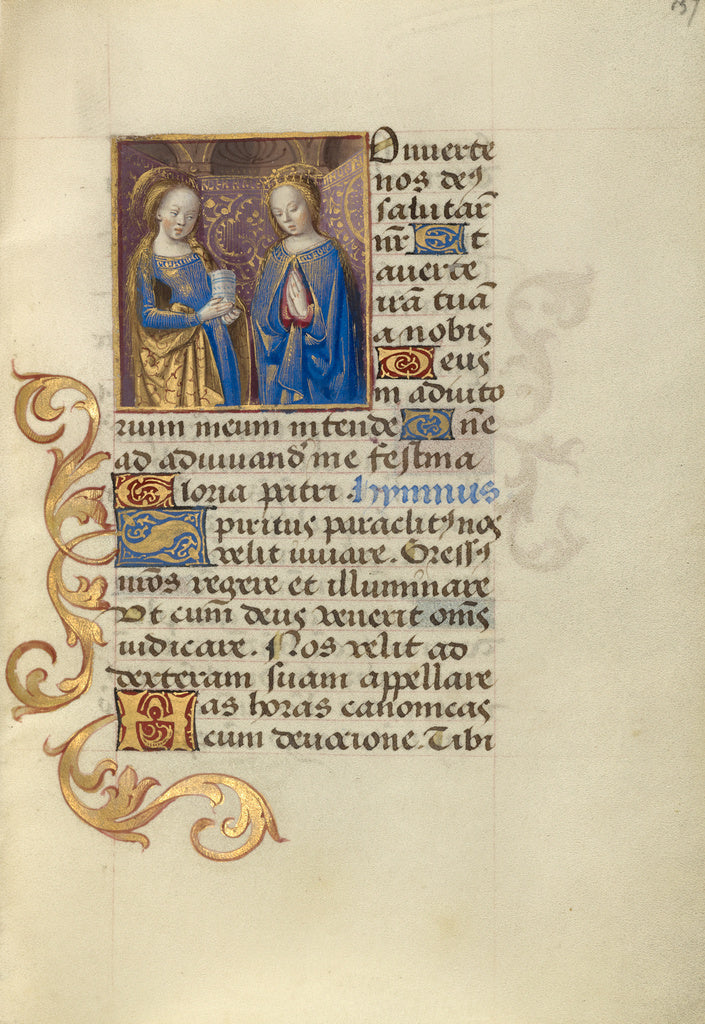 157
Onuerte
nos de9
salutar̄
nr̄ Et
auerte
irā tuā
a nobis
Deus
in adiuto
rium meum intende One
ad adiuuand̄ me festina
Gloria patri. hymnus
Spiritus paraclit9 nos
velit iuuare. Gress9
nr̄os regere et illuminare
Vt cum̄ deus venerit om̄s
iudicare. Nos velit ad
dexteram suam appellare
Has horas canonicas
cum deuocione. Tibi